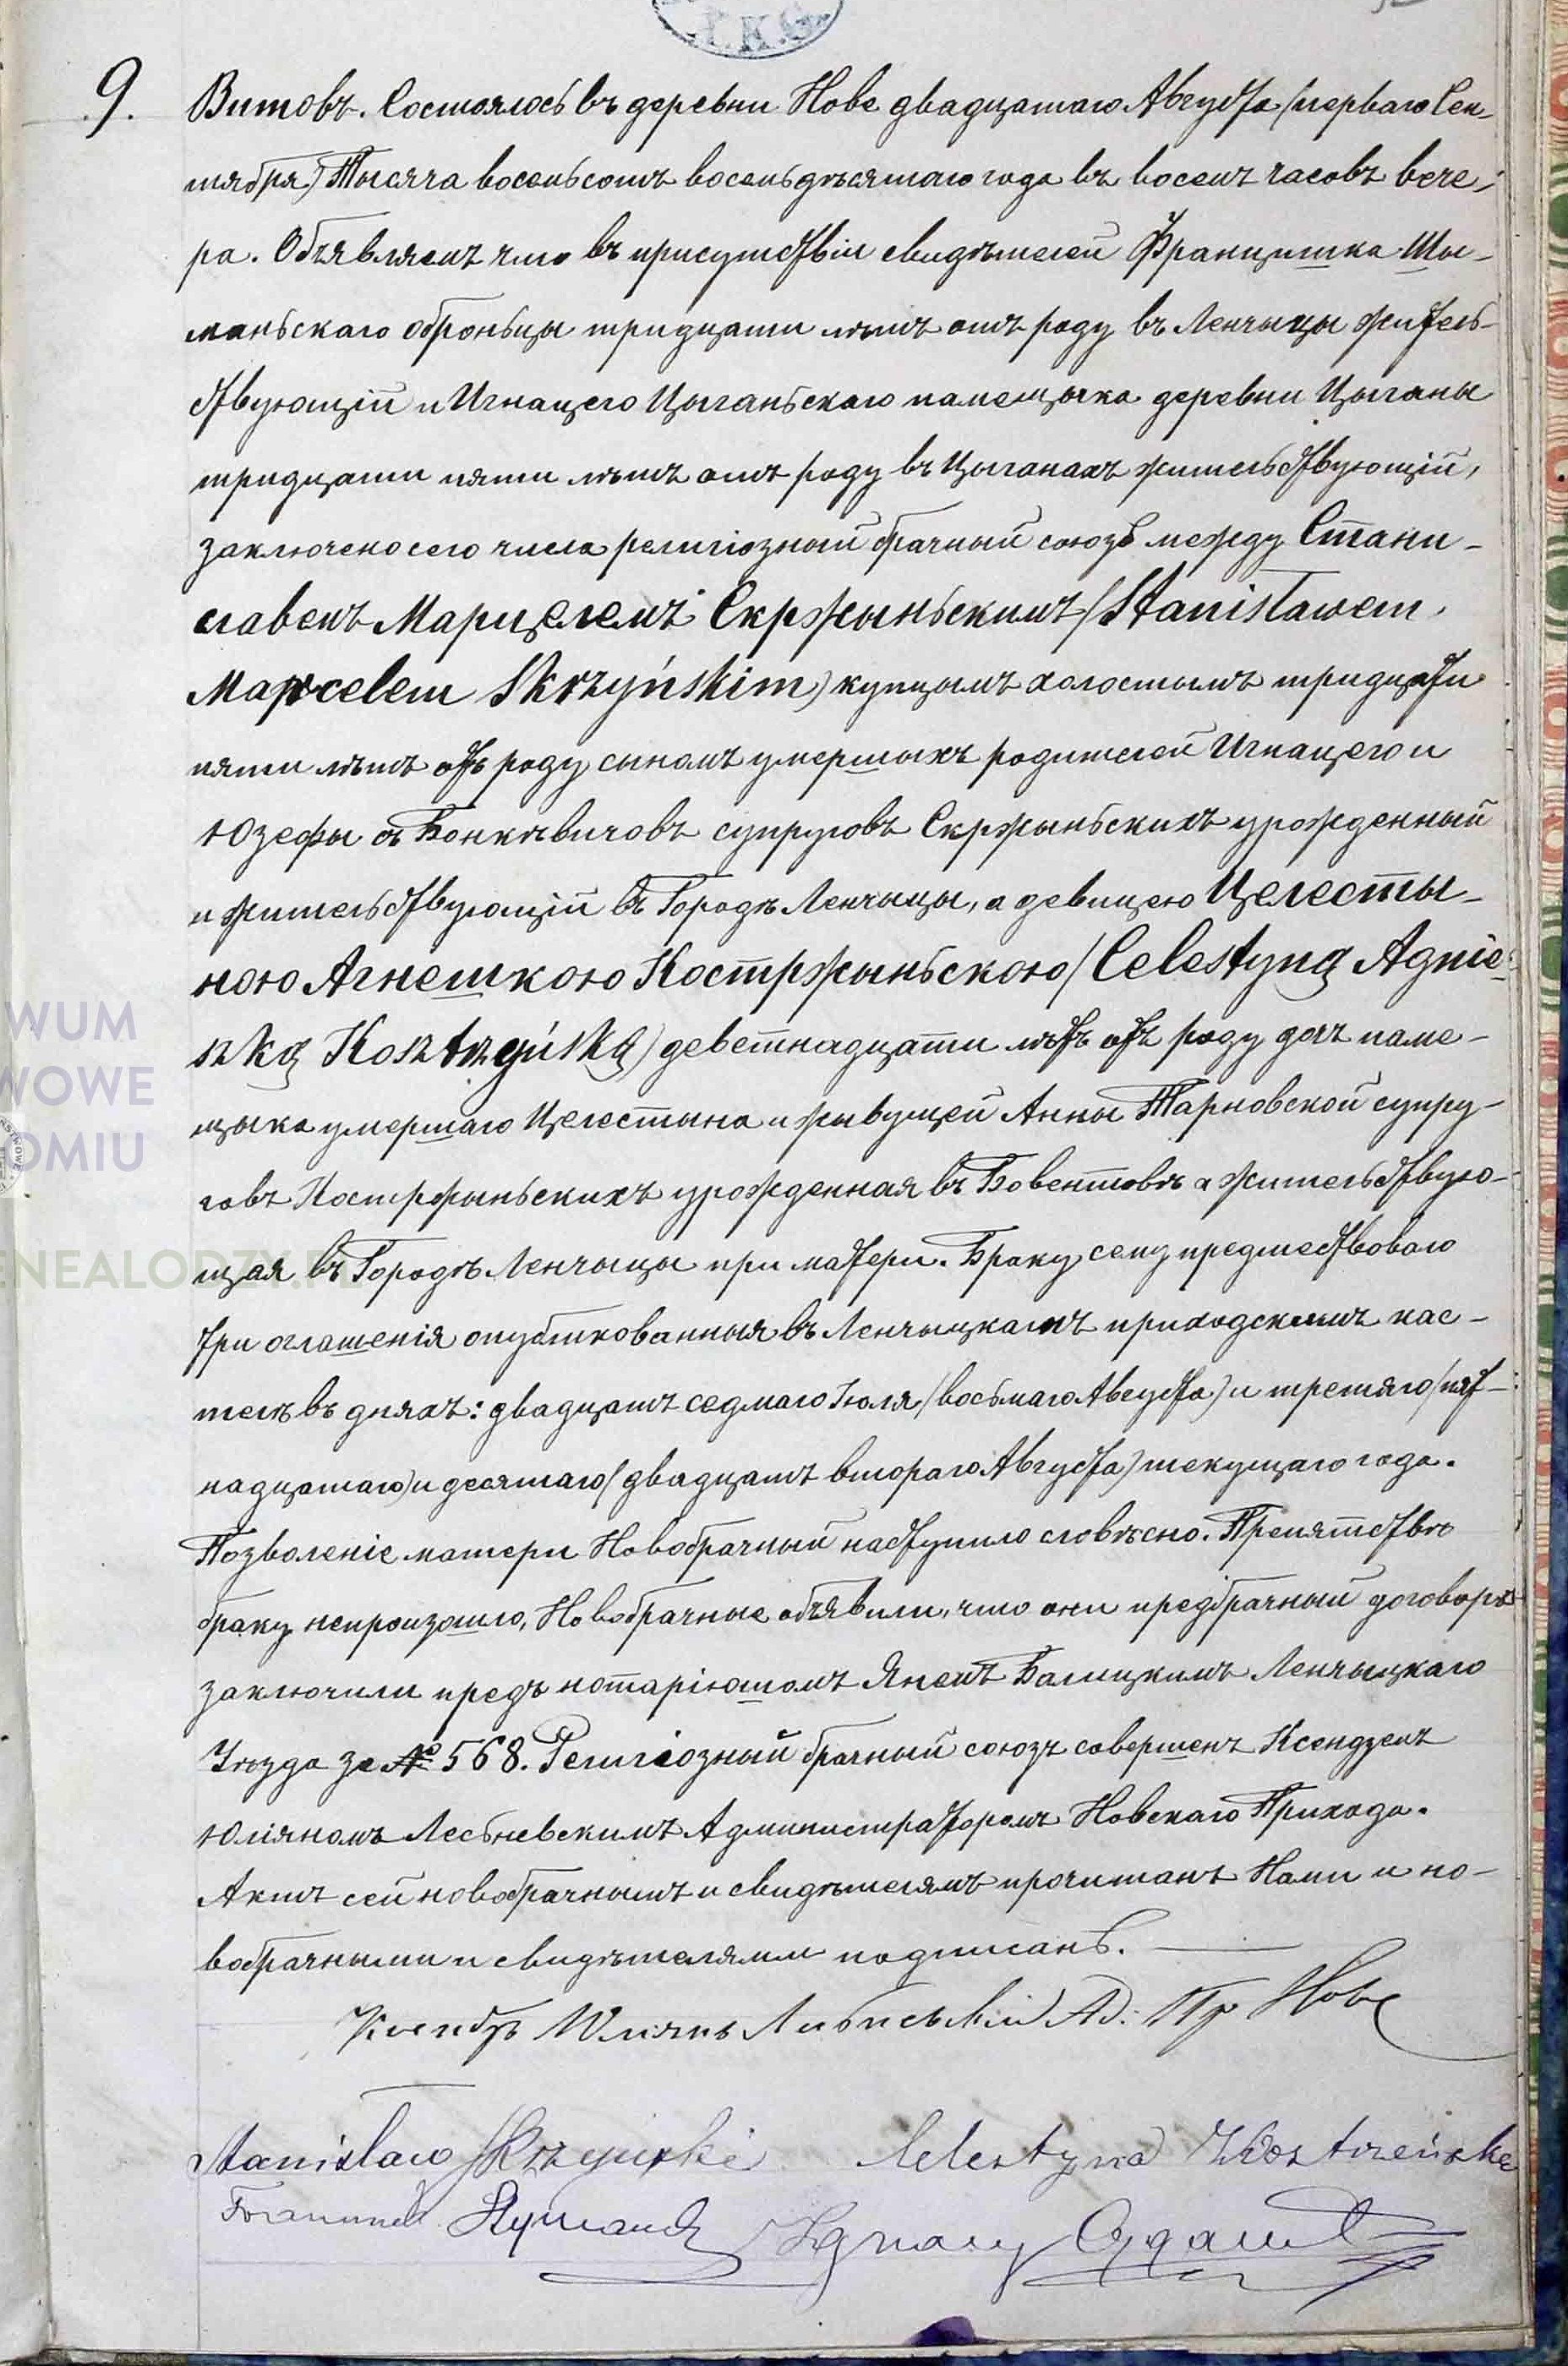 9. Витовъ. Состоялось въ деревни Нове двадцатаго Августа (перваго Сен-
тября) Тысяча восемьсотъ восемьдѣсятаго года въ восемъ часовъ вече-
ра. Объявляемъ что въ присутствіи свидѣтелей Францишка Шы-
маньскаго оброньцы тридцати лѣтъ отъ роду въ Ленчыцы житель-
ствующій и Игнацего Цыганьскаго памещыка деревни Цыганы
тридцати пяти лѣтъ отъ роду въ Цыганахъ жительствующій,
заключено сего числа религіозный брачный союзъ между Стани-
славемъ Марцелемъ Скржыньскимъ (Stanisławem
Marcelem Skrzyńskim) купцымъ холостымъ тридцати
пяти лѣтъ отъ роду сыномъ умершыхъ родителей Игнацего и
Юзефы съ Бонкѣвичовъ супруговъ Скржыньскихъ урожденный
и жительствующій въ Городѣ Ленчыцы, а девицею Целесты-
ною Агнешкою Костржыньскою (Celestyną Agnie-
szką Kosztrzyńską) деветнадцати лѣтъ отъ роду дочъ паме-
щыка умершаго Целестына и жывущей Анны Тарновской супру-
говъ Костржыньскихъ урожденная въ Бовентовѣ а жительствую-
щая въ Городѣ Ленчыцы при матери. Браку сему предшествовало
три оглашенія опубликованныя въ Ленчыцкамъ приходскимъ кос-
телѣ въ дняхъ: двадцатъ седмаго Іюля (восьмаго Августа) и третяго (пят-
надцатаго) и десятаго (двадцатъ втораго Августа) текущаго года.
Позволеніе матери Новобрачный наступило словѣсно. Препятствѣ
браку непроизошло, Новобрачные объявили, что они предбрачный договоръ
заключили предъ нотаріюшомъ Янемъ Балицкимъ Ленчыцкаго
Уѣзда за № 568. Религіозный брачный союзъ совершенъ Ксендземъ
Юліяномъ Лесьневскимъ Администраторомъ Новскаго Прихода.
Актъ сей новобрачнымъ и свидѣтелямъ прочитанъ Нами и но-
вобрачными и свидѣтелями подписанъ.
Ксендзъ Юліянъ Ад. Пр Нове
Stanisław Skrzyński Celestyna Kostrzeńska
Ignacy
WUM
WOWE
OMIU
ENEALODZY.P